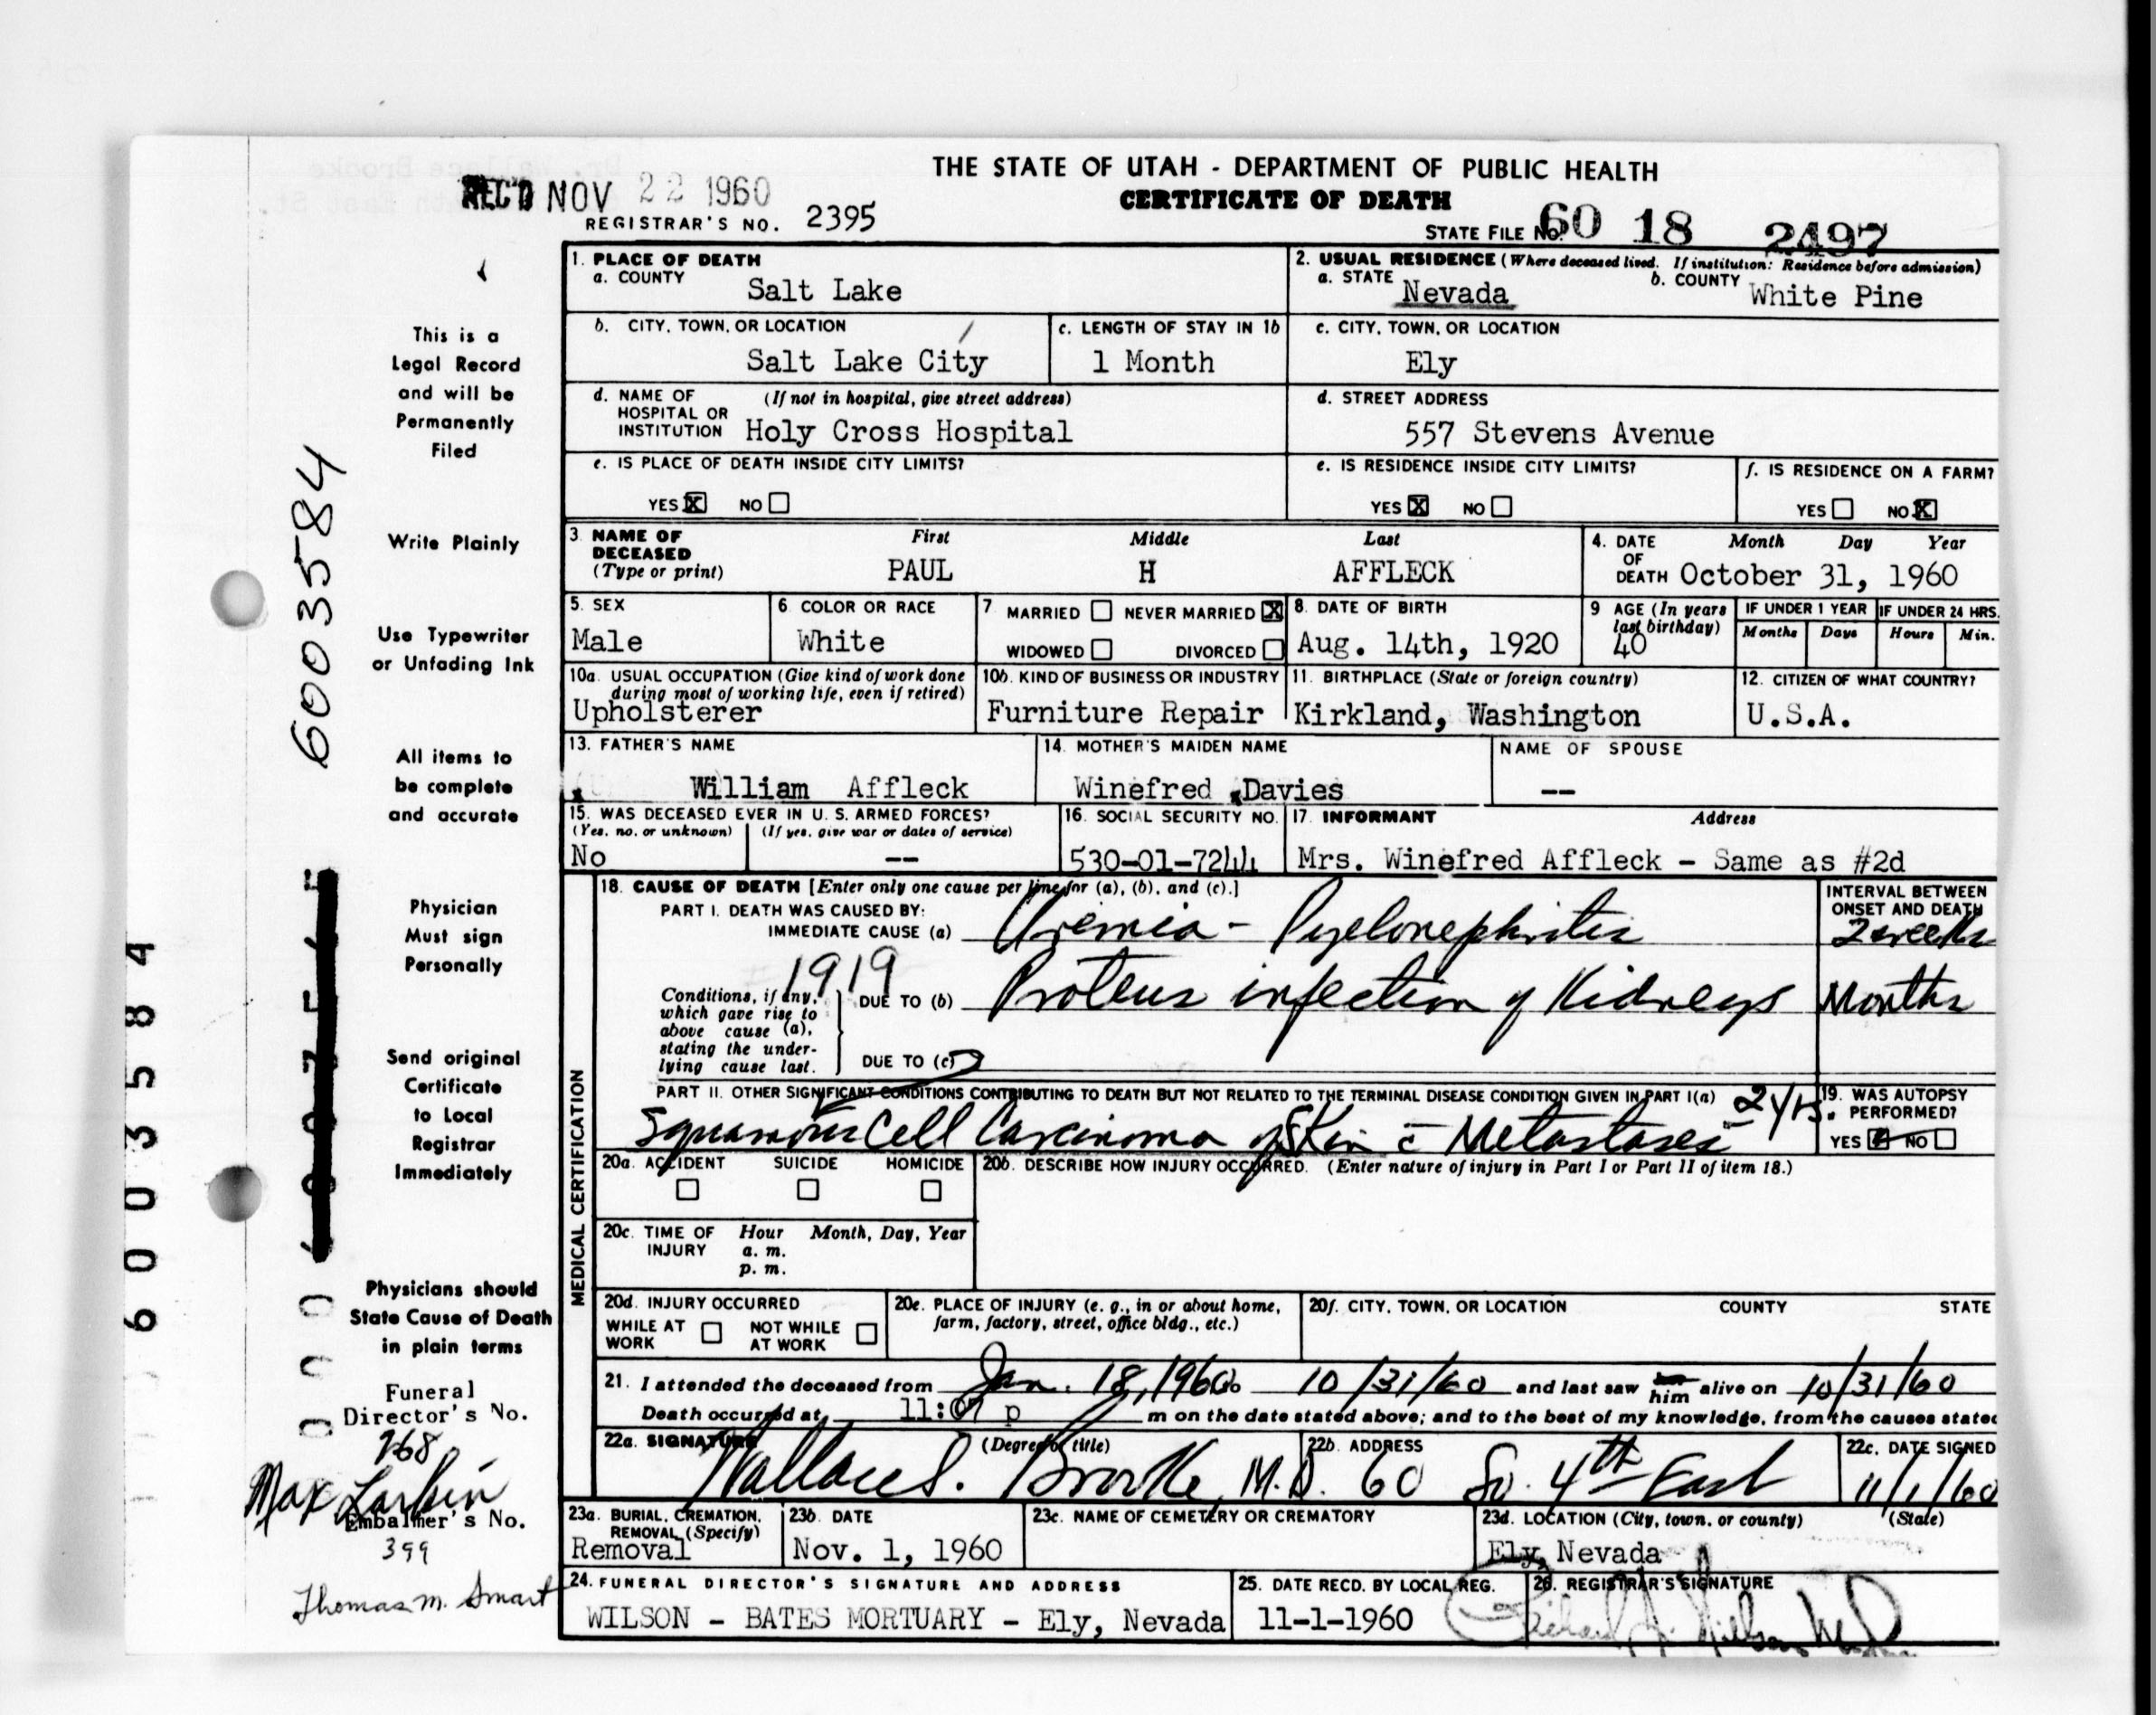 THE STATE OF UTAH - DEPARTMENT OF PUBLIC HEALTH
CERTIFICATE OF DEATH
REC'D NOV 22 1960
REGISTRAR'S NO. 2395
STATE FILE NO. 60 18 2497
This is a
Legal Record
and will be
Permanently
Filed
Write Plainly
Use Typewriter
or Unfading Ink
All items to
be complete
and accurate
Physician
Must sign
Personally
Send original
Certificate
to Local
Registrar
Immediately
Physicians should
State Cause of Death
in plain terms
Funeral
Director's No.
768
Max Larkin
Embalmer's No.
399
Thomas M. Smart
6003584
6003584
1. PLACE OF DEATH
a. COUNTY Salt Lake
2. USUAL RESIDENCE (Where deceased lived. If institution: Residence before admission)
a. STATE Nevada b. COUNTY White Pine
b. CITY, TOWN, OR LOCATION Salt Lake City
c. LENGTH OF STAY IN 1b 1 Month
c. CITY, TOWN, OR LOCATION Ely
d. NAME OF HOSPITAL OR INSTITUTION (If not in hospital, give street address) Holy Cross Hospital
d. STREET ADDRESS 557 Stevens Avenue
e. IS PLACE OF DEATH INSIDE CITY LIMITS? YES X NO
e. IS RESIDENCE INSIDE CITY LIMITS? YES X NO
f. IS RESIDENCE ON A FARM? YES NO X
3. NAME OF DECEASED (Type or print) First Middle Last
PAUL H AFFLECK
4. DATE OF DEATH Month Day Year
October 31, 1960
5. SEX Male
6. COLOR OR RACE White
7 MARRIED NEVER MARRIED X
WIDOWED DIVORCED
8. DATE OF BIRTH Aug. 14th, 1920
9 AGE (In years last birthday) 40
IF UNDER 1 YEAR Months Days
IF UNDER 24 HRS. Hours Min.
10a. USUAL OCCUPATION (Give kind of work done during most of working life, even if retired) Upholsterer
10b. KIND OF BUSINESS OR INDUSTRY Furniture Repair
11. BIRTHPLACE (State or foreign country) Kirkland, Washington
12. CITIZEN OF WHAT COUNTRY? U.S.A.
13. FATHER'S NAME William Affleck
14. MOTHER'S MAIDEN NAME Winefred Davies
NAME OF SPOUSE --
15. WAS DECEASED EVER IN U. S. ARMED FORCES?
(Yes, no, or unknown) (If yes, give war or dates of service)
No --
16. SOCIAL SECURITY NO. 530-01-7244
17. INFORMANT Address
Mrs. Winefred Affleck - Same as #2d
MEDICAL CERTIFICATION
18. CAUSE OF DEATH [Enter only one cause per line for (a), (b), and (c).]
INTERVAL BETWEEN ONSET AND DEATH
PART I. DEATH WAS CAUSED BY:
IMMEDIATE CAUSE (a) Uremia - Pyelonephritis 2 weeks
1919
Conditions, if any, which gave rise to above cause (a), stating the underlying cause last.
DUE TO (b) Proteus infection of Kidneys Months
DUE TO (c)
PART II. OTHER SIGNIFICANT CONDITIONS CONTRIBUTING TO DEATH BUT NOT RELATED TO THE TERMINAL DISEASE CONDITION GIVEN IN PART I(a)
Squamous Cell Carcinoma of Skin c̄ Metastases 2 yrs.
19. WAS AUTOPSY PERFORMED?
YES NO
20a. ACCIDENT SUICIDE HOMICIDE
20b. DESCRIBE HOW INJURY OCCURRED. (Enter nature of injury in Part I or Part II of item 18.)
20c. TIME OF INJURY Hour Month, Day, Year
a. m.
p. m.
20d. INJURY OCCURRED
WHILE AT WORK NOT WHILE AT WORK
20e. PLACE OF INJURY (e. g., in or about home, farm, factory, street, office bldg., etc.)
20f. CITY, TOWN, OR LOCATION COUNTY STATE
21. I attended the deceased from Jan. 18, 1960 10/31/60 and last saw him alive on 10/31/60
Death occurred at 11:07 p m on the date stated above; and to the best of my knowledge, from the causes stated
22a. SIGNATURE (Degree or title) Wallace S. Brooke M.D.
22b. ADDRESS 60 So. 4th East
22c. DATE SIGNED 11/1/60
23a. BURIAL, CREMATION, REMOVAL (Specify) Removal
23b. DATE Nov. 1, 1960
23c. NAME OF CEMETERY OR CREMATORY
23d. LOCATION (City, town, or county) (State)
Ely, Nevada
24. FUNERAL DIRECTOR'S SIGNATURE AND ADDRESS
WILSON - BATES MORTUARY - Ely, Nevada
25. DATE RECD. BY LOCAL REG. 11-1-1960
26. REGISTRAR'S SIGNATURE